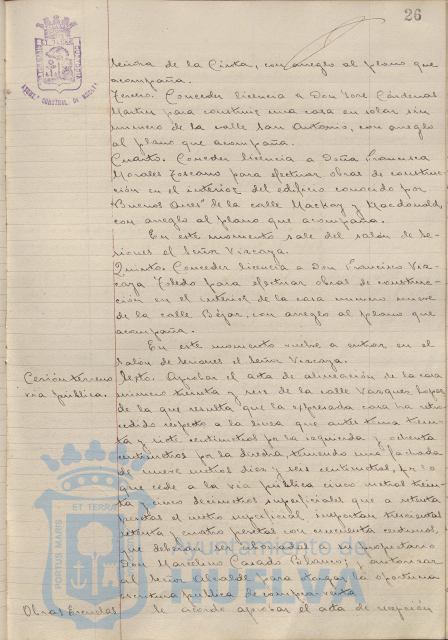 26
Señora de la Cinta, con arreglo al plano que
acompaña.
Tercero. Conceder licencia a Don José Cárdenas
Martin para construir una casa en solar sin
numero de la calle San Antonio, con arreglo
al plano que acompaña.
Cuarto. Conceder licencia a Doña Francisca
Morales Toscano para efectuar obras de construc-
ción en el interior del edificio conocido por
"Buenos Aires" de la calle Mackay y Macdonald,
con arreglo al plano que acompaña.
En este momento sale del salón de Se-
siones el Señor Vizcaya.
Quinto. Conceder licencia a Don Francisco Viz-
caya Toledo para efectuar obras de construc-
ción en el interior de la casa numero nueve
de la calle Béjar, con arreglo al plano que
acompaña.
En este momento vuelve a entrar en el
Salón de Sesiones el Señor Vizcaya.
Cesión terreno
via pública.
Sexto. Aprobar el acta de alineación de la casa
numero treinta y seis de la calle Vazquez Lopez
de la que resulta que la expresada casa ha retro
cedido respecto a la linea que antes tenia trein-
ta y siete centimetros por la izquierda y ochenta
centimetros por la derecha, teniendo una fachada
de nueve metros diez y seis centimetros, por lo
que cede a la via pública cinco metros trein-
ta y cinco decimetros superficiales que a
pesetas el metro superficial importan trescientas
setenta y cuatro pesetas con cincuenta centimos,
que deberán ser abonadas a su propietario
Don Marcelino Casado; y autorizar
al Señor Alcalde para otorgar la oportuna
escritura publica de compraventa
Obras
Se acordo aprobar el acta de recepción
PORTUS MARIS
ET TERRAE
Ayuntamiento de
HUELVA